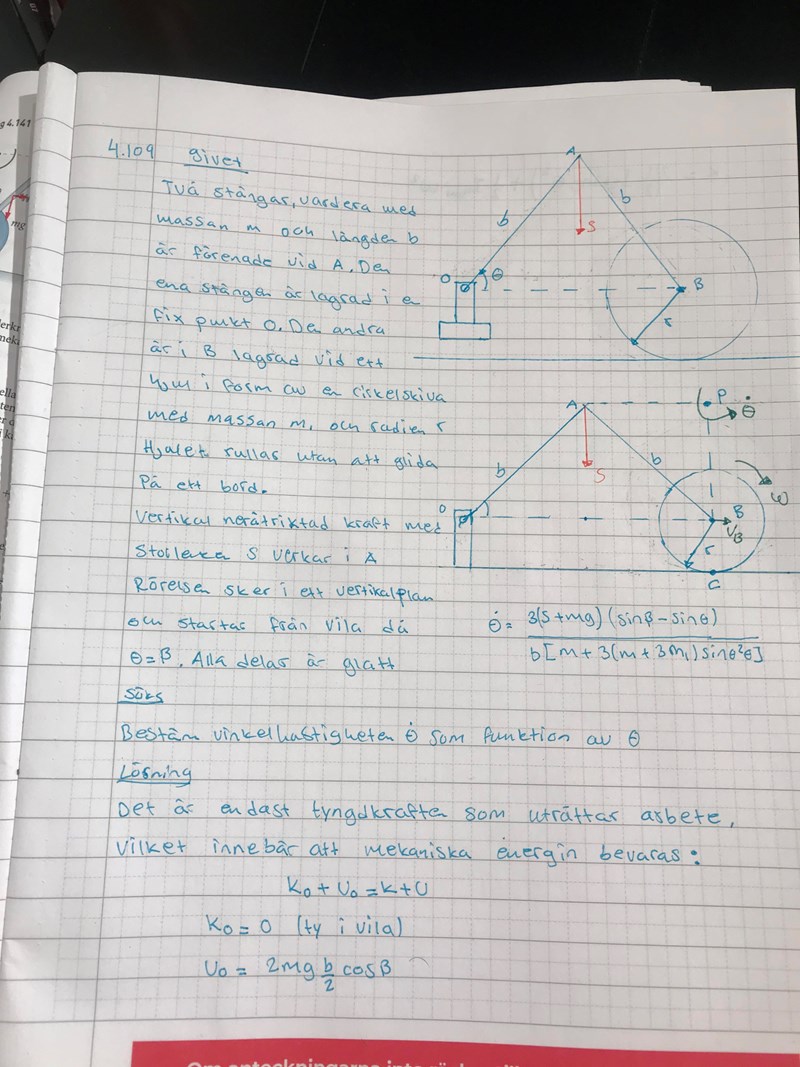 g 4.141
mg
4.109 givet
Två stångar, vardera med
massan m och längden b
är förenade vid A. Den
ena stången är lagrad i e
fix punkt O. Den andra
är i B lagrad vid ett
hjul i form av en cirkelskiva
med massan m, och radien r
Hjulet rullas utan att glida
På ett bord.
Vertikal neråtriktad kraft med
Storleken S verkar i A
Rörelsen sker i ett vertikalplan
och startar från vila då
θ=β. Alla delar är glatt
A
b
b
S
O
θ
B
r
A
P
θ̇
b
b
S
ω
O
B
V_B
r
C
θ̇ = 3(S+mg)(sinβ-sinθ) / b[m+3(m+3m₁)sinθ²θ]
Söks
Bestäm vinkelhastigheten θ̇ som funktion av θ
Lösning
Det är endast tyngdkraften som uträttar arbete,
vilket innebär att mekaniska energin bevaras:
K₀ + U₀ = K + U
K₀ = 0 (ty i vila)
U₀ = 2mg b/2 cosβ